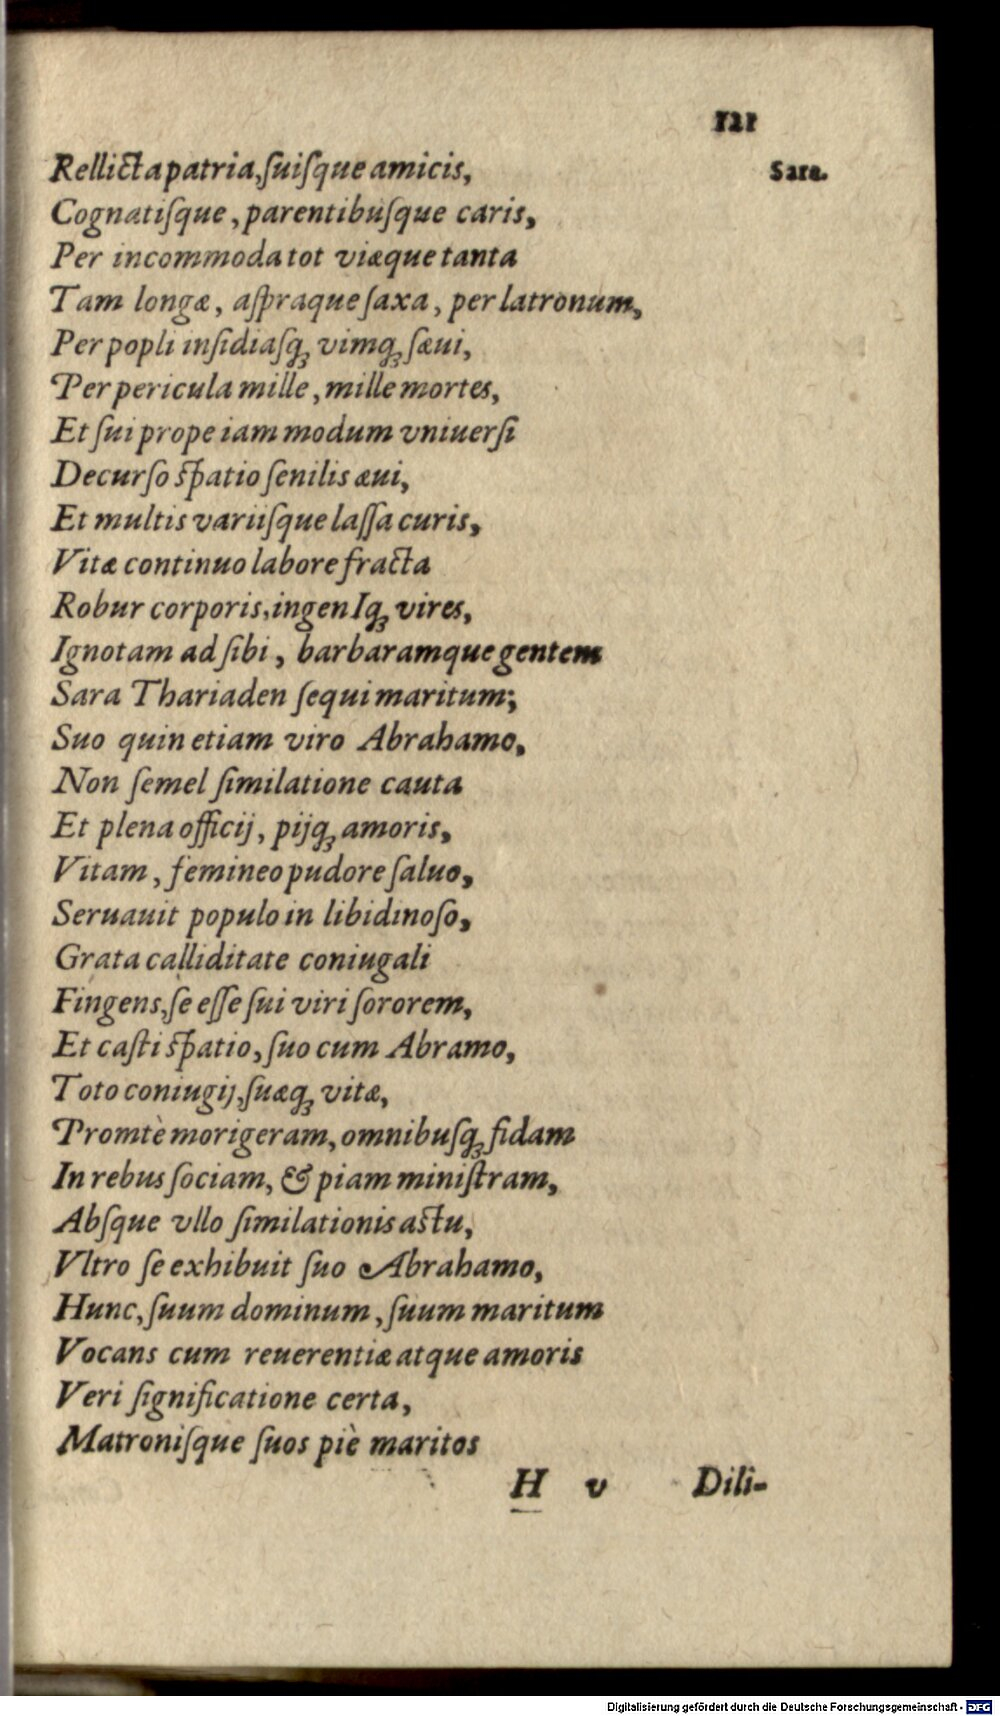 121
Sara.
Rellicta patria, ſuiſque amicis,
Cognatiſque, parentibuſque caris,
Per incommoda tot viæque tanta
Tam longæ, aſpraque ſaxa, per latronum,
Per popli inſidiaſq́; vimq́; ſæui,
Per pericula mille, mille mortes,
Et ſui prope iam modum vniuerſi
Decurſo ſpatio ſenilis æui,
Et multis variiſque laſſa curis,
Vitæ continuo labore fracta
Robur corporis, ingenIq́; vires,
Ignotam ad ſibi, barbaramque gentem
Sara Thariaden ſequi maritum;
Suo quin etiam viro Abrahamo,
Non ſemel ſimilatione cauta
Et plena officij, pijq́; amoris,
Vitam, femineo pudore ſaluo,
Seruauit populo in libidinoſo,
Grata calliditate coniugali
Fingens, ſe eſſe ſui viri ſororem,
Et caſti ſpatio, ſuo cum Abramo,
Toto coniugij, ſuæq́; vitæ,
Promtè morigeram, omnibuſq́; fidam
In rebus ſociam, & piam miniſtram,
Abſque vllo ſimilationis aſtu,
Vltro ſe exhibuit ſuo Abrahamo,
Hunc, ſuum dominum, ſuum maritum
Vocans cum reuerentiæ atque amoris
Veri ſignificatione certa,
Matroniſque ſuos piè maritos
H v Dili-
Digitalisierung gefördert durch die Deutsche Forschungsgemeinschaft - DFG